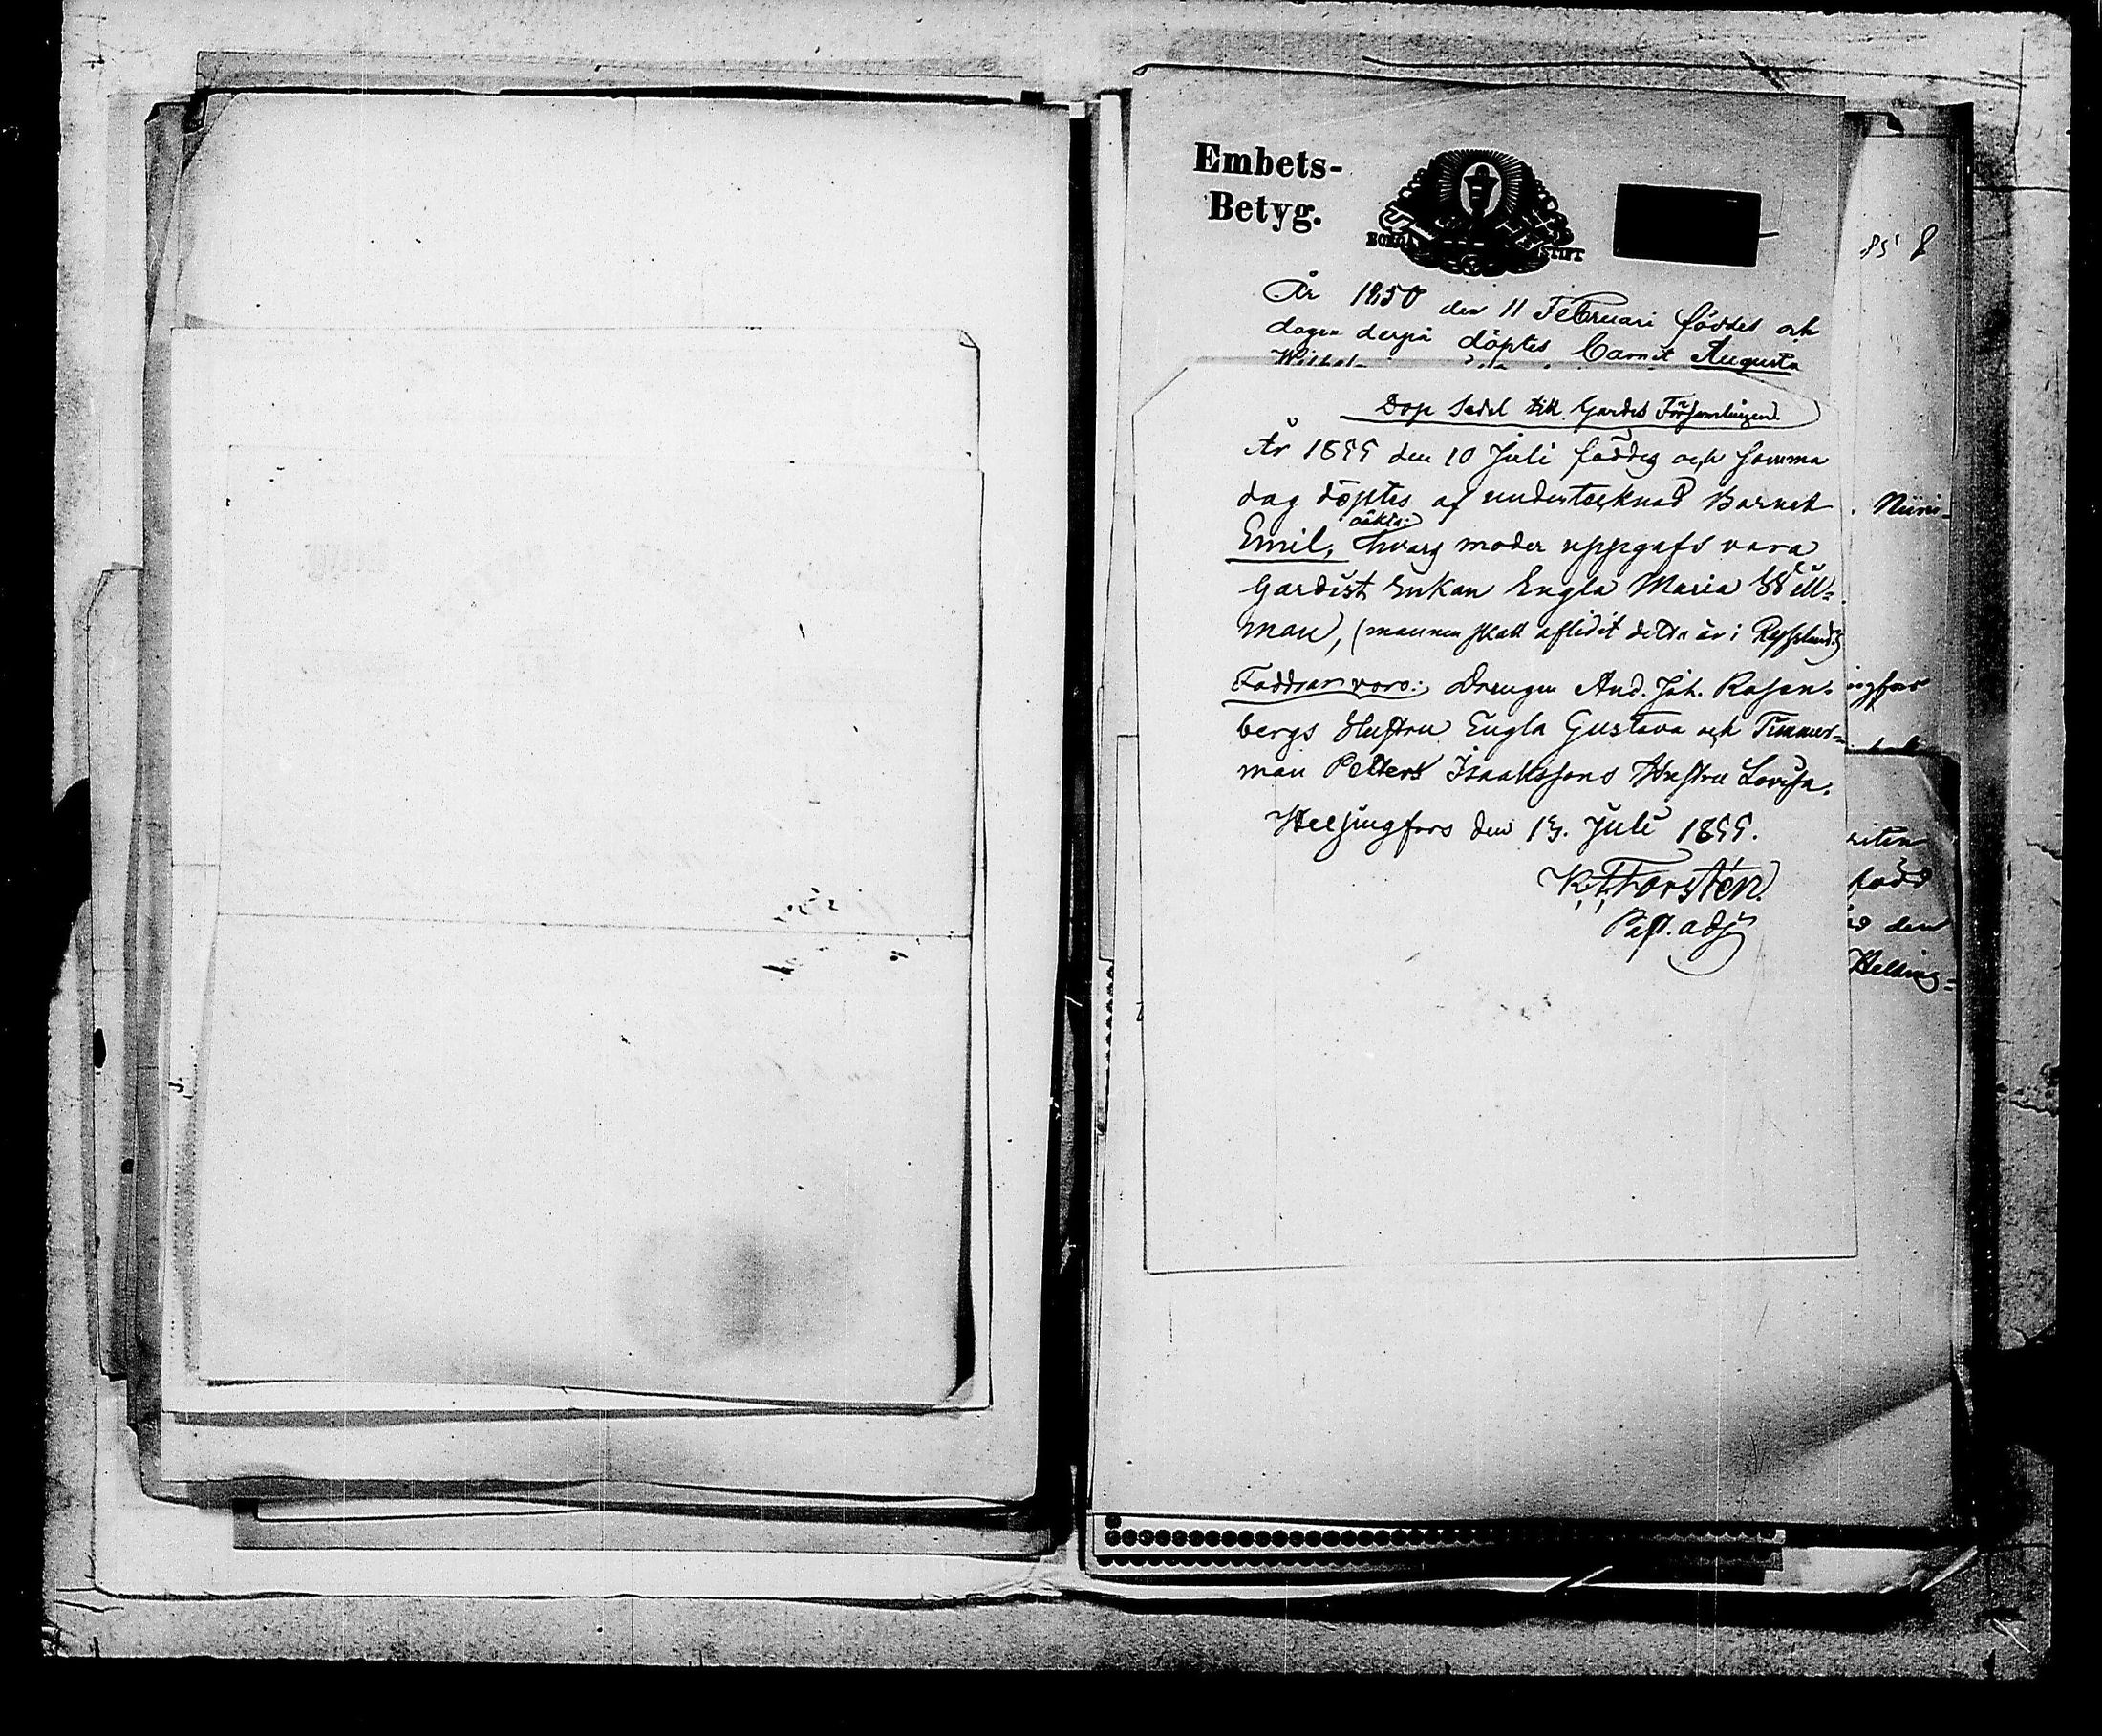 Embets-
Betyg.
BORGÅ STIFT
År 1850 den 11 Februari föddes och
dagen derpå döptes barnet Augusta
85
Dop Sedel till Gardes Församlingen
År 1855 den 10 Juli föddes och samma
dag döptes af undertecknad Barnet
oäkta
Emil, hvars moder uppgafs vara
Gardist Enkan Engla Maria Will-
man, (mannen skall aflidit detta år i Ryssland)
Faddrar voro: Drengen And. Joh. Rosen-
bergs Hustru Engla Gustava och Timmer-
man Petters Isaakssons Hustru Lovisa.
Helsingfors den 13. Juli 1855.
K. Thorstén
Past. adj
Nuri-
ingfors
riten
född
den
Helsing-